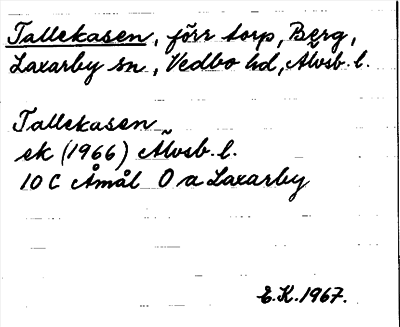 Tallekasen, förr torp, Berg,
Laxarby sn, Vedbo hd, Älvsb. l.
Tallekasen
ek (1966) Älvsb. l.
10 C Åmål 0 a Laxarby
E.K. 1967.